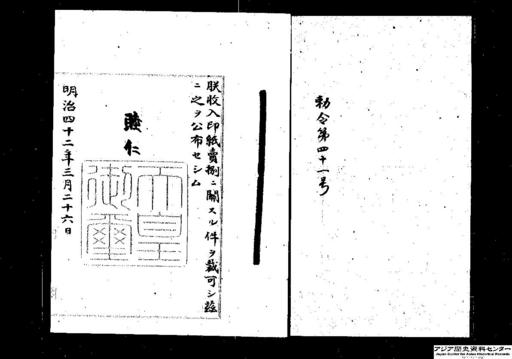 勅令第四十一号
朕收入印紙賣捌ニ關スル件ヲ裁可シ茲
ニ之ヲ公布セシム
睦仁
天皇
御璽
明治四十二年三月二十六日
アジア歴史資料センター
Japan Center for Asian Historical Records